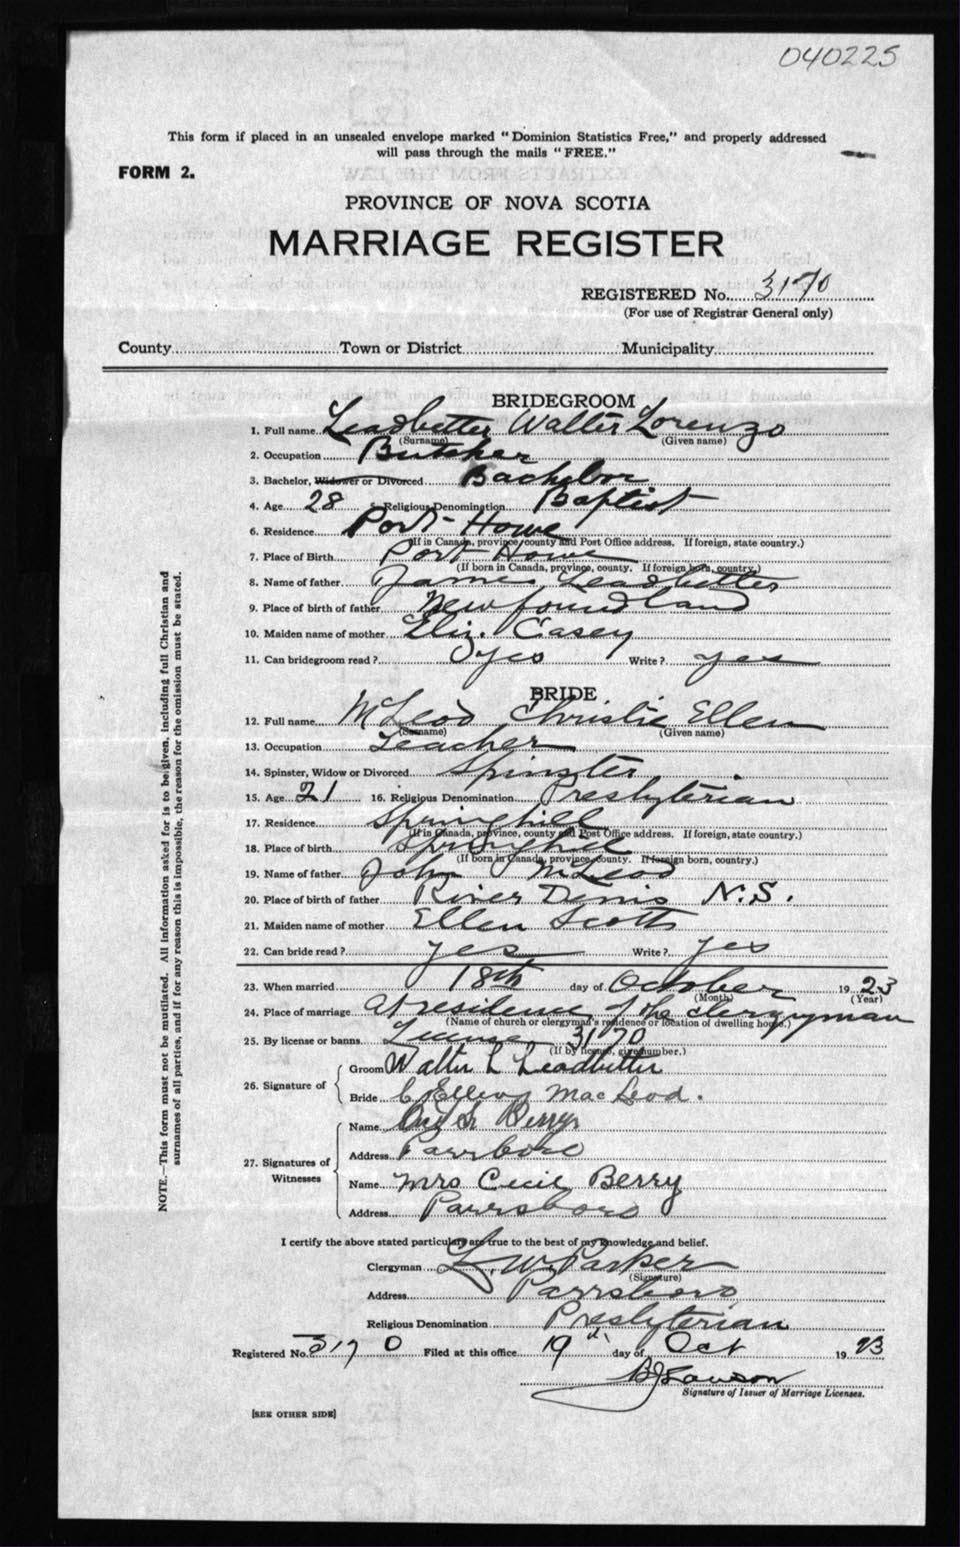 040225
This form if placed in an unsealed envelope marked "Dominion Statistics Free," and properly addressed
will pass through the mails "FREE."
FORM 2.
PROVINCE OF NOVA SCOTIA
MARRIAGE REGISTER
REGISTERED No. 3170
(For use of Registrar General only)
County Town or District Municipality
BRIDEGROOM
1. Full name Leadbetter Walter Lorenzo
(Surname) (Given name)
2. Occupation Butcher
3. Bachelor, Widower or Divorced Bachelor
4. Age 28 5. Religious Denomination Baptist
6. Residence Port Howe
(If in Canada, province, county and Post Office address. If foreign, state country.)
7. Place of Birth Port Howe
(If born in Canada, province, county. If foreign born, country.)
8. Name of father James Leadbetter
9. Place of birth of father Newfoundland
10. Maiden name of mother Eliz. Casey
11. Can bridegroom read? yes Write? yes
BRIDE
12. Full name McLeod Christie Ellen
(Surname) (Given name)
13. Occupation Teacher
14. Spinster, Widow or Divorced Spinster
15. Age 21 16. Religious Denomination Presbyterian
17. Residence Springhill
(If in Canada, province, county and Post Office address. If foreign, state country.)
18. Place of birth Springhill
(If born in Canada, province, county. If foreign born, country.)
19. Name of father John McLeod
20. Place of birth of father River Denis N.S.
21. Maiden name of mother Ellen Scott
22. Can bride read? yes Write? yes
23. When married 18th day of October 1923
(Month) (Year)
24. Place of marriage at residence of the clergyman
(Name of church or clergyman's residence or location of dwelling house.)
25. By license or banns License 3170
(If by license, give number.)
26. Signature of
Groom Walter L Leadbetter
Bride C Ellen MacLeod.
27. Signatures of Witnesses
Name Berry
Address Parrsboro
Name Mrs Cecil Berry
Address Parrsboro
I certify the above stated particulars are true to the best of my knowledge and belief.
Clergyman L. W. Parker
(Signature)
Address Parrsboro
Religious Denomination Presbyterian
Registered No. 3170 Filed at this office 19th day of Oct 1923
Signature of Issuer of Marriage Licenses.
[SEE OTHER SIDE]
NOTE.—This form must not be mutilated. All information asked for is to be given, including full Christian and
surnames of all parties, and if for any reason this is impossible, the reason for the omission must be stated.